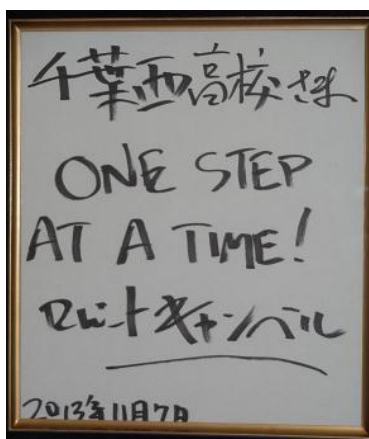 千葉西高校さま
ONE STEP
AT A TIME!
ロバートキャンベル
2013年11月7日